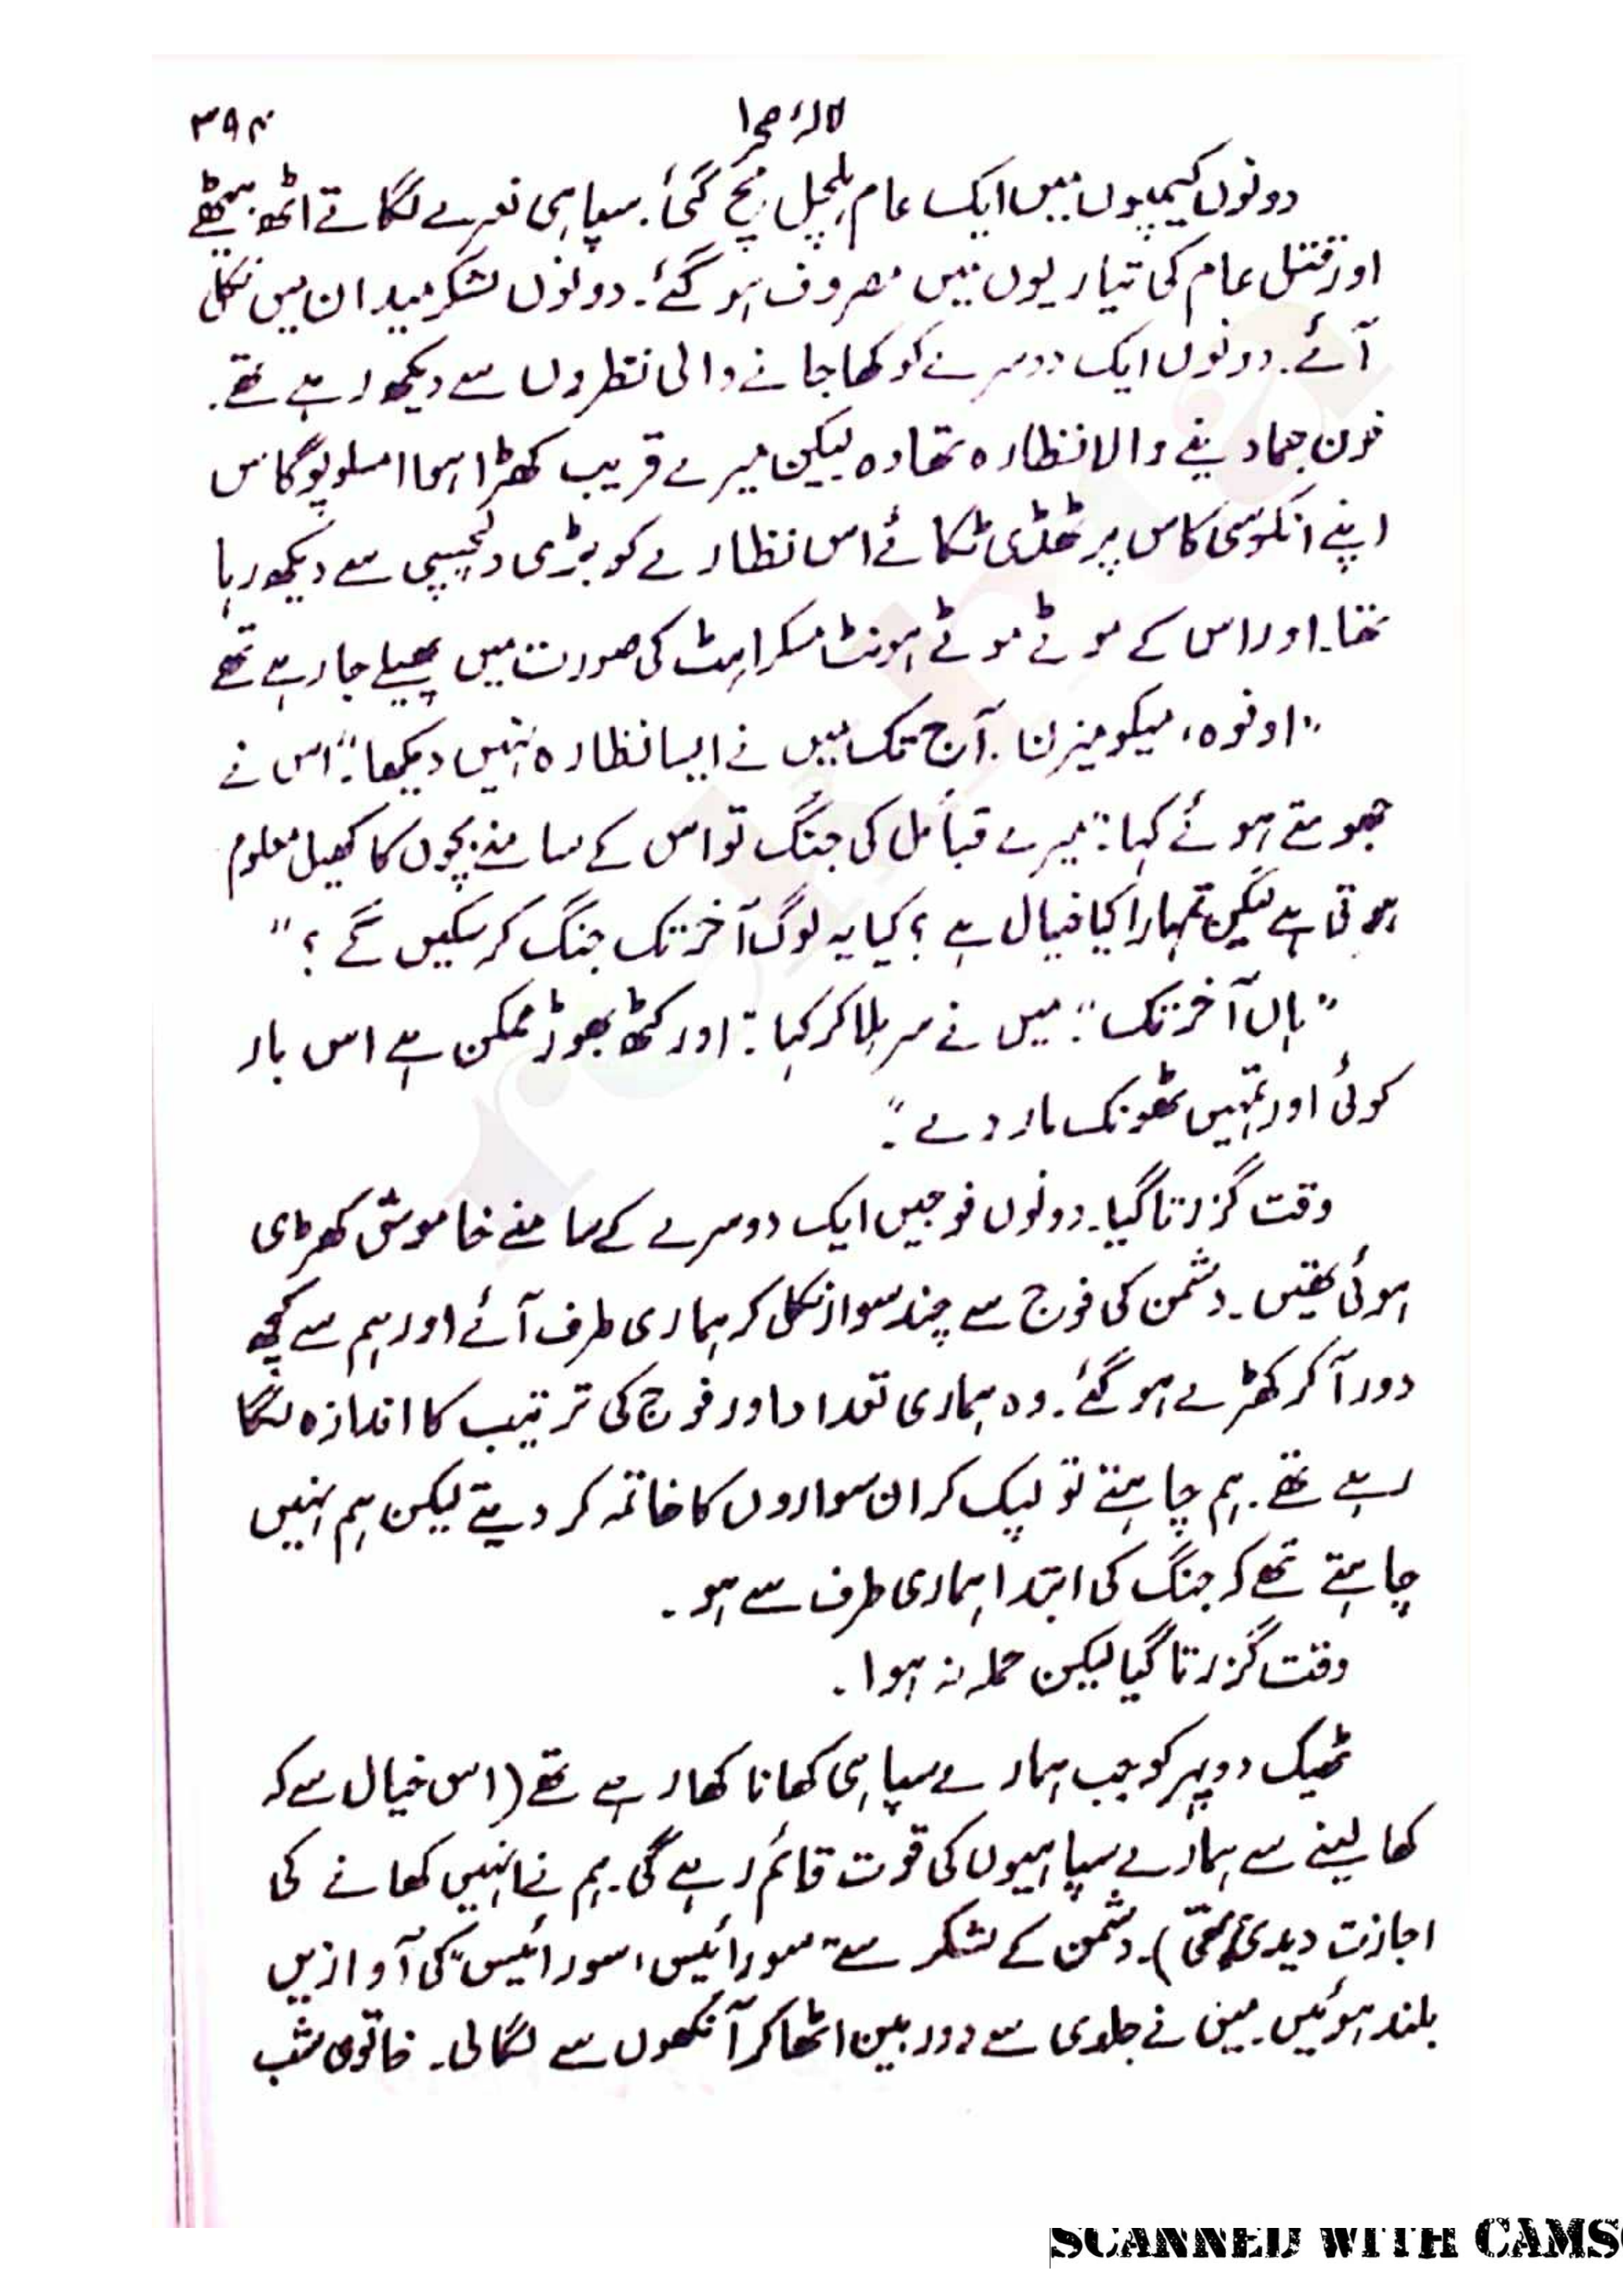 لالۂ صحرا ۳۹۴
دونوں کیمپوں میں ایک عام ہلچل مچ گئی۔ سپاہی نعرے لگاتے اٹھ بیٹھے
اور قتل عام کی تیاریوں میں مصروف ہو گئے۔ دونوں لشکر میدان میں نکل
آئے۔ دونوں ایک دوسرے کو کھا جانے والی نظروں سے دیکھ رہے تھے۔
خون جما دینے والا نظارہ تھا وہ لیکن میرے قریب کھڑا ہوا امسلوپوگاس
اپنے انکوسی کاس پر ٹھڈی ٹکائے اس نظارے کو بڑی دلچسپی سے دیکھ رہا
تھا۔ اور اس کے موٹے موٹے ہونٹ مسکراہٹ کی صورت میں پھیلے جا رہے تھے
"اونوہ، میکومیزن۔ آج تک میں نے ایسا نظارہ نہیں دیکھا"۔ اس نے
جھومتے ہوئے کہا: "میرے قبائل کی جنگ تو اس کے سامنے بچوں کا کھیل معلوم
ہوتی ہے لیکن تمہارا کیا خیال ہے؟ کیا یہ لوگ آخر تک جنگ کر سکیں گے؟"
"ہاں آخر تک"۔ میں نے سر ہلا کر کہا: "اور کٹھ پھوڑ ممکن ہے اس بار
کوئی اور تمہیں ٹھونگ مار دے"۔
وقت گزرتا گیا۔ دونوں فوجیں ایک دوسرے کے سامنے خاموش کھڑی
ہوئی تھیں۔ دشمن کی فوج سے چند سوار نکل کر ہماری طرف آئے اور ہم سے کچھ
دور آکر کھڑے ہو گئے۔ وہ ہماری تعداد اور فوج کی ترتیب کا اندازہ لگا
رہے تھے۔ ہم چاہتے تو لپک کر ان سواروں کا خاتمہ کر دیتے لیکن ہم نہیں
چاہتے تھے کہ جنگ کی ابتدا ہماری طرف سے ہو۔
وقت گزرتا گیا لیکن حملہ نہ ہوا۔
ٹھیک دوپہر کو جب ہمارے سپاہی کھانا کھا رہے تھے (اس خیال سے کہ
کھا لینے سے ہمارے سپاہیوں کی قوت قائم رہے گی۔ ہم نے انہیں کھانے کی
اجازت دیدی تھی)۔ دشمن کے لشکر سے "سورائیس، سورائیس" کی آوازیں
بلند ہوئیں۔ میں نے جلدی سے دوربین اٹھا کر آنکھوں سے لگا لی۔ خاتون شب
SCANNED WITH CAMS